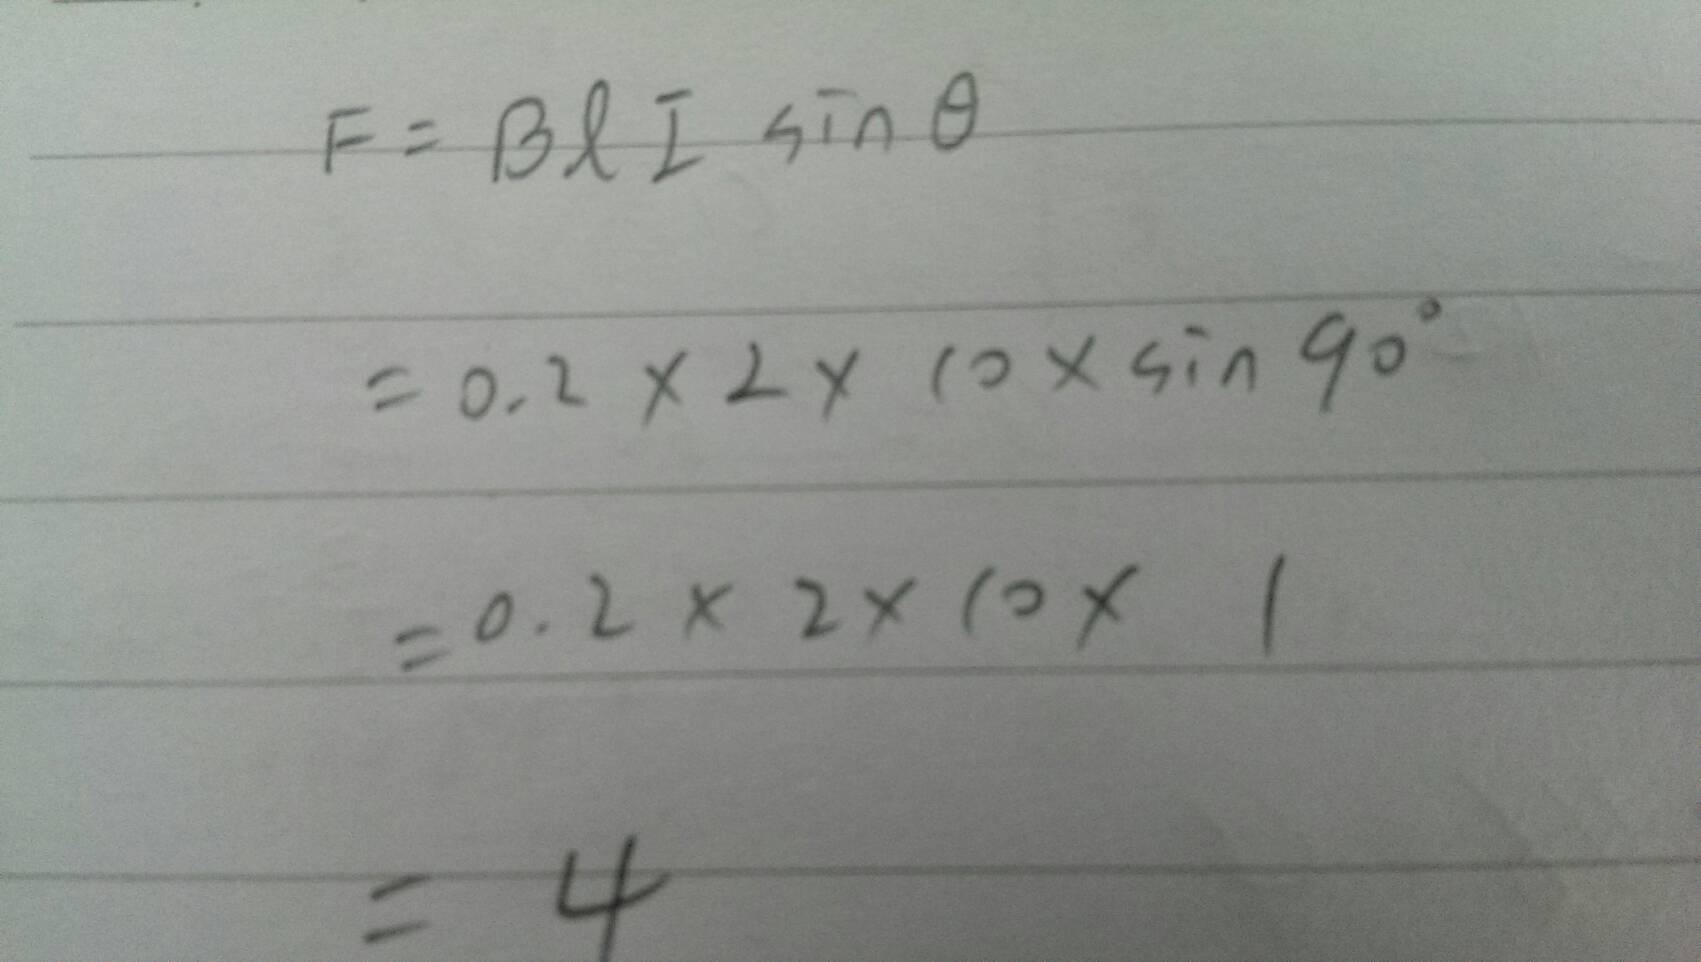 F = BlI sin θ
= 0.2 × 2 × 10 × sin 90°
= 0.2 × 2 × 10 × 1
= 4